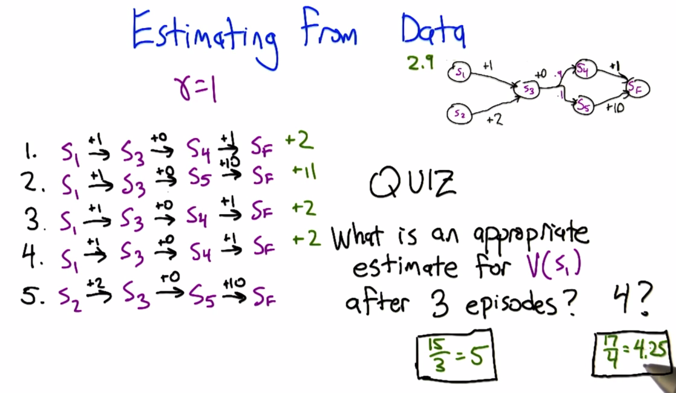 Estimating From Data
γ=1
2.9
S1 +1 S3 +0 .9 S4 +1 SF
S2 +2 .1 S5 +10
1. S1 +1→ S3 +0→ S4 +1→ SF +2
2. S1 +1→ S3 +0→ S5 +10→ SF +11
3. S1 +1→ S3 +0→ S4 +1→ SF +2
4. S1 +1→ S3 +0→ S4 +1→ SF +2
5. S2 +2→ S3 +0→ S5 +10→ SF
QUIZ
What is an appropriate
estimate for V(S1)
after 3 episodes? 4?
15/3 = 5
17/4 = 4.25